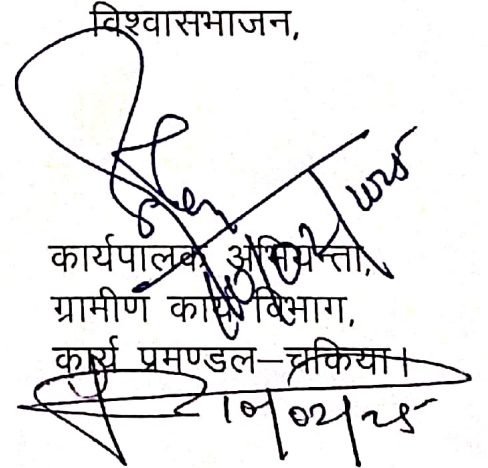 विश्वासभाजन,
कार्यपालक अभियन्ता,
ग्रामीण कार्य विभाग,
कार्य प्रमण्डल–चकिया।
10/02/25